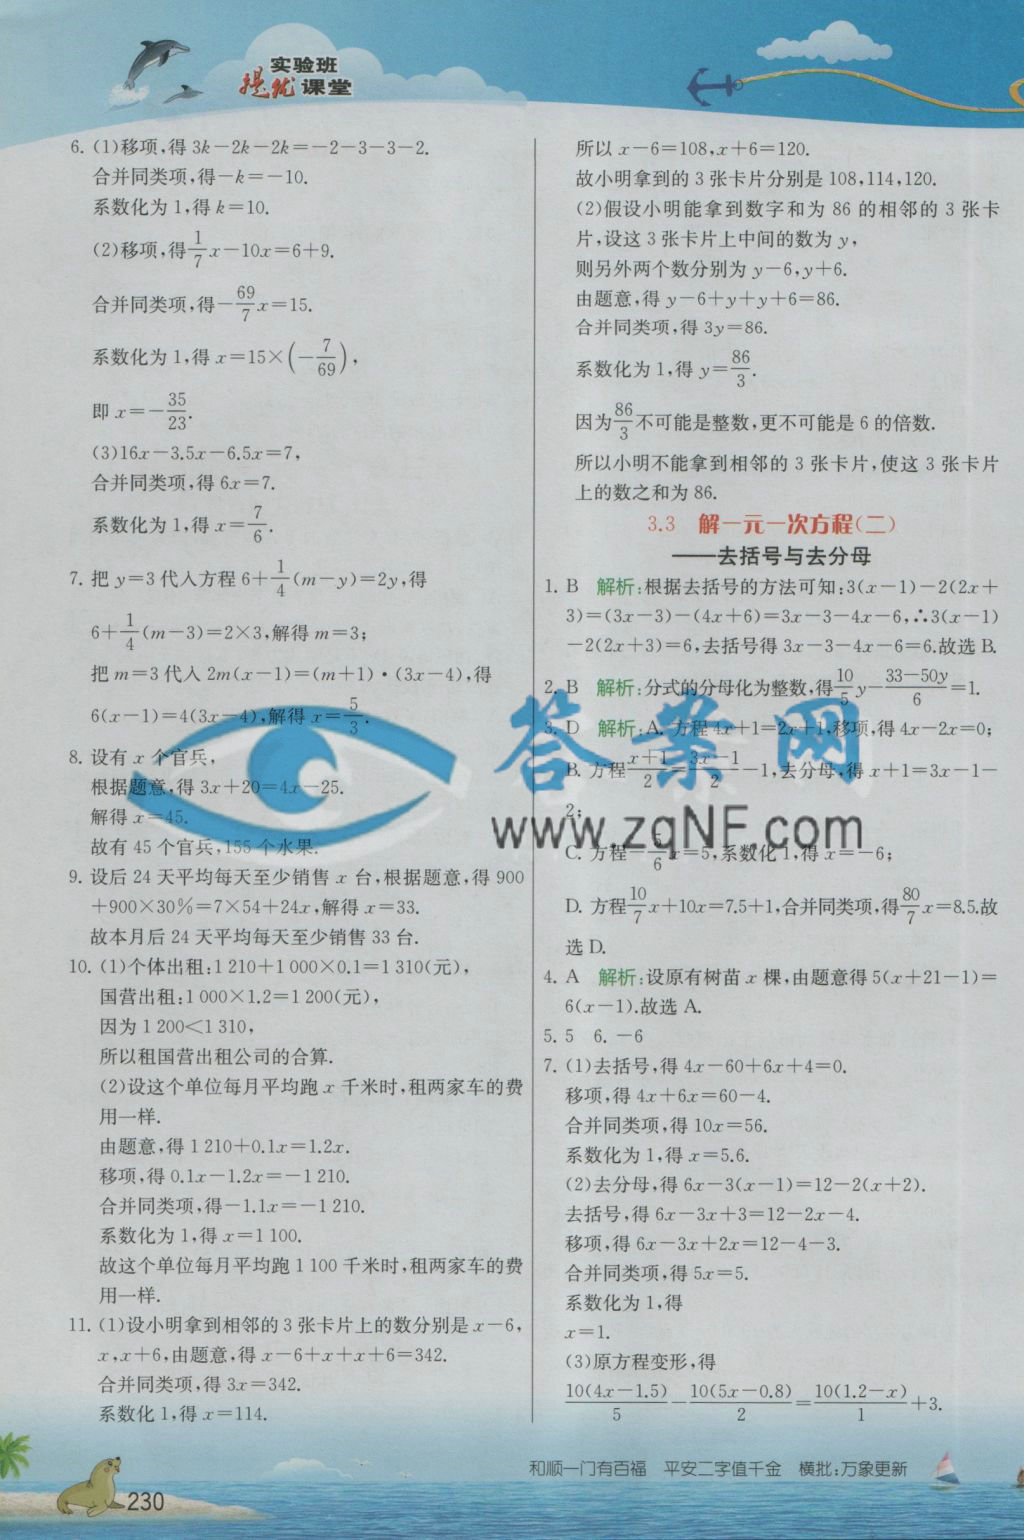 实验班
提优 课堂
6. (1)移项,得 3k-2k-2k=-2-3-3-2.
合并同类项,得-k=-10.
系数化为 1,得 k=10.
(2)移项,得1/7x-10x=6+9.
合并同类项,得-69/7x=15.
系数化为 1,得 x=15×(-7/69),
即 x=-35/23.
(3)16x-3.5x-6.5x=7,
合并同类项,得 6x=7.
系数化为 1,得 x=7/6.
7. 把 y=3 代入方程 6+1/4(m-y)=2y,得
6+1/4(m-3)=2×3,解得 m=3;
把 m=3 代入 2m(x-1)=(m+1)·(3x-4),得
6(x-1)=4(3x-4),解得 x=5/3.
8. 设有 x 个官兵,
根据题意,得 3x+20=4x-25.
解得 x=45.
故有 45 个官兵,155 个水果.
9. 设后 24 天平均每天至少销售 x 台,根据题意,得 900
+900×30%=7×54+24x,解得 x=33.
故本月后 24 天平均每天至少销售 33 台.
10. (1)个体出租:1 210+1 000×0.1=1 310(元),
国营出租:1 000×1.2=1 200(元),
因为 1 200<1 310,
所以租国营出租公司的合算.
(2)设这个单位每月平均跑 x 千米时,租两家车的费
用一样.
由题意,得 1 210+0.1x=1.2x.
移项,得 0.1x-1.2x=-1 210.
合并同类项,得-1.1x=-1 210.
系数化为 1,得 x=1 100.
故这个单位每月平均跑 1 100 千米时,租两家车的费
用一样.
11. (1)设小明拿到相邻的 3 张卡片上的数分别是 x-6,
x,x+6,由题意,得 x-6+x+x+6=342.
合并同类项,得 3x=342.
系数化 1,得 x=114.
所以 x-6=108,x+6=120.
故小明拿到的 3 张卡片分别是 108,114,120.
(2)假设小明能拿到数字和为 86 的相邻的 3 张卡
片,设这 3 张卡片上中间的数为 y,
则另外两个数分别为 y-6,y+6.
由题意,得 y-6+y+y+6=86.
合并同类项,得 3y=86.
系数化为 1,得 y=86/3.
因为86/3不可能是整数,更不可能是 6 的倍数.
所以小明不能拿到相邻的 3 张卡片,使这 3 张卡片
上的数之和为 86.
3.3 解一元一次方程(二)
——去括号与去分母
1. B 解析:根据去括号的方法可知:3(x-1)-2(2x+
3)=(3x-3)-(4x+6)=3x-3-4x-6,∴3(x-1)
-2(2x+3)=6,去括号得 3x-3-4x-6=6.故选 B.
2. B 解析:分式的分母化为整数,得10/5y-33-50y/6=1.
3. D 解析:A. 方程 4x+1=2x+1,移项,得 4x-2x=0;
B. 方程x+1/2=3x-1/2-1,去分母,得 x+1=3x-1-
2;
C. 方程-5/6x=5,系数化 1,得 x=-6;
D. 方程10/7x+10x=7.5+1,合并同类项,得80/7x=8.5.故
选 D.
4. A 解析:设原有树苗 x 棵,由题意得 5(x+21-1)=
6(x-1).故选 A.
5. 5 6. -6
7. (1)去括号,得 4x-60+6x+4=0.
移项,得 4x+6x=60-4.
合并同类项,得 10x=56.
系数化为 1,得 x=5.6.
(2)去分母,得 6x-3(x-1)=12-2(x+2).
去括号,得 6x-3x+3=12-2x-4.
移项,得 6x-3x+2x=12-4-3.
合并同类项,得 5x=5.
系数化为 1,得
x=1.
(3)原方程变形,得
10(4x-1.5)/5-10(5x-0.8)/2=10(1.2-x)/1+3.
答案网
www.zqNF.com
和顺一门有百福 平安二字值千金 横批:万象更新
230